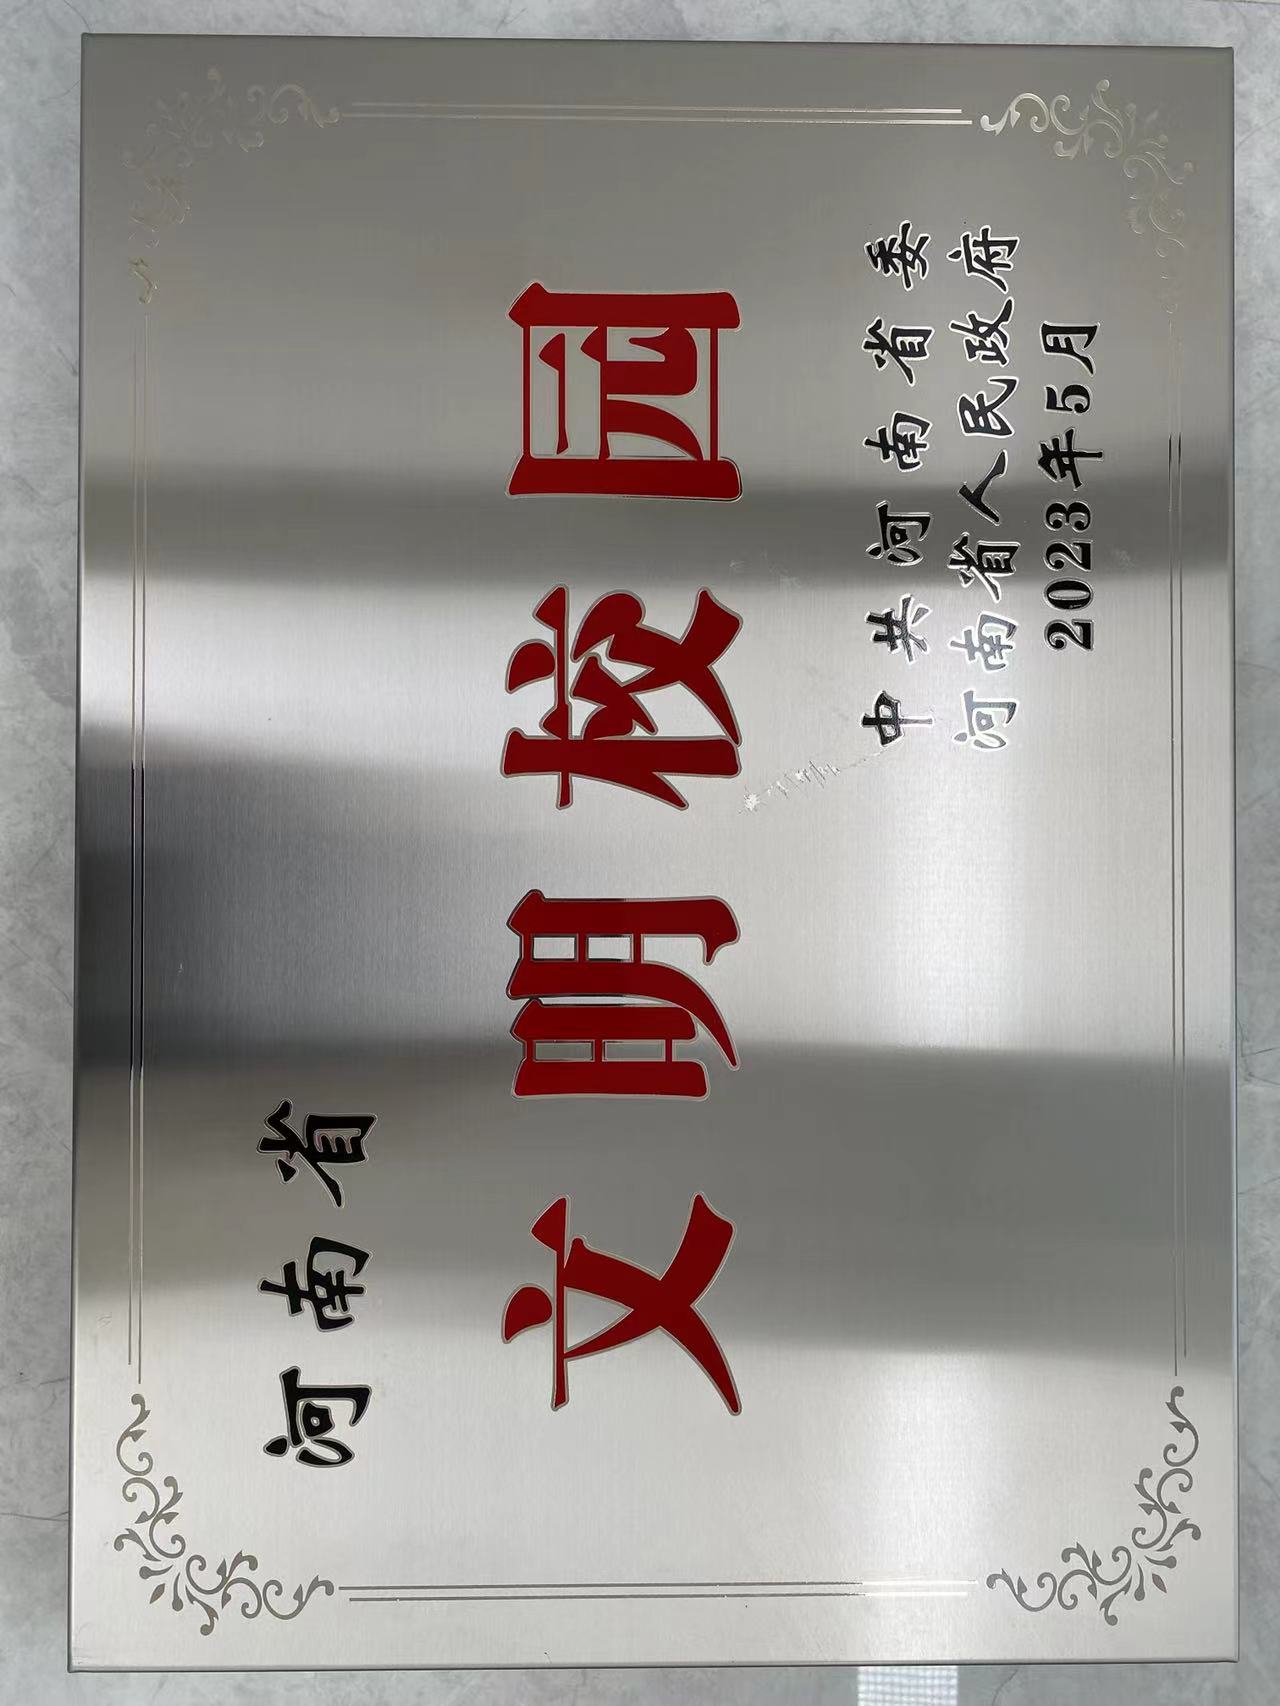 河南省
文明校园
中共河南省委
河南省人民政府
2023年5月